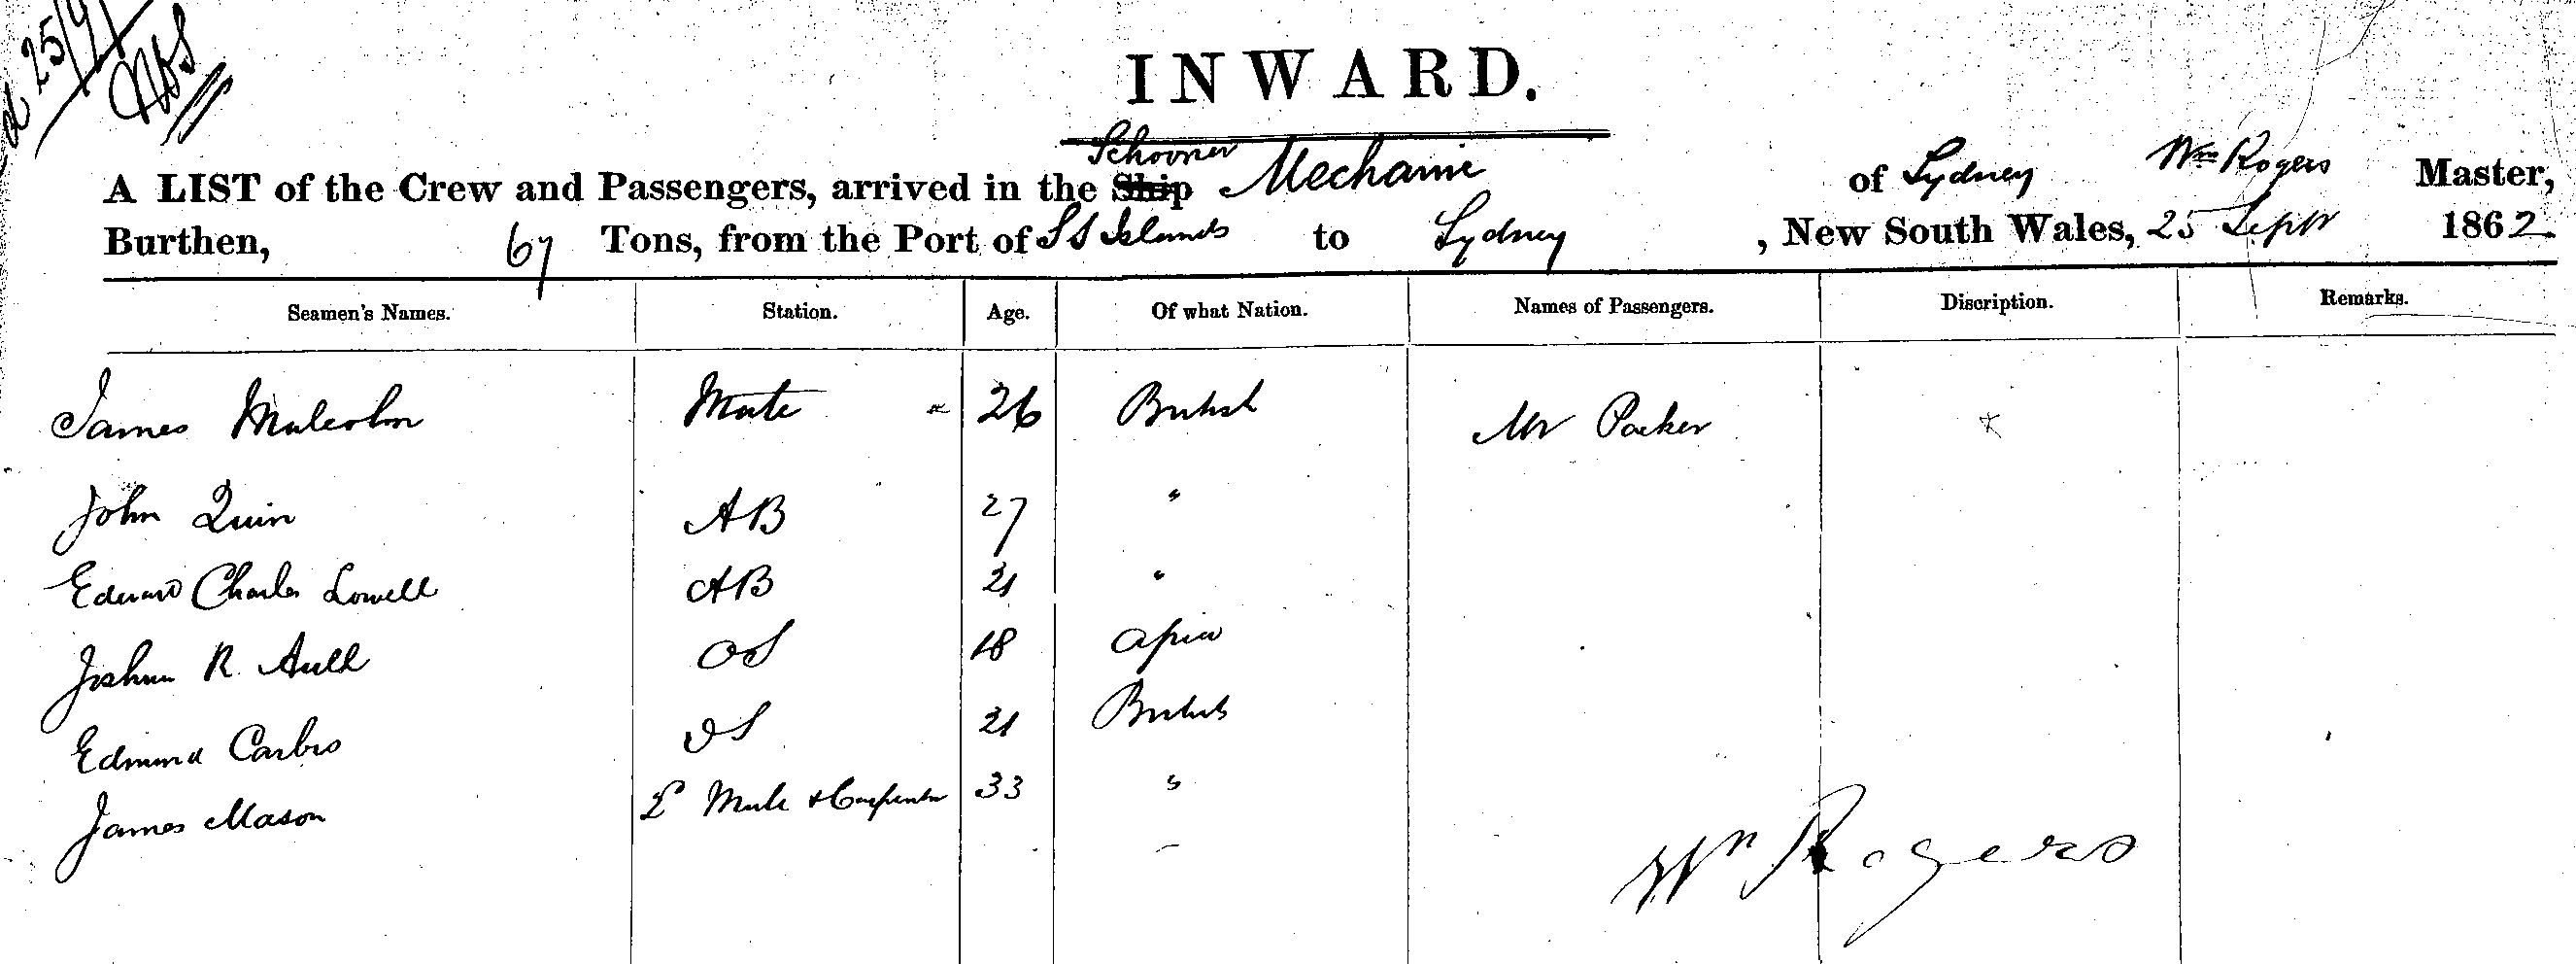 25/9
INWARD.
Schooner
A LIST of the Crew and Passengers, arrived in the Ship Mechanic of Sydney Wm Rogers Master,
Burthen, 67 Tons, from the Port of S S Islands to Sydney, New South Wales, 25 Septr 1862.
Seamen's Names. Station. Age. Of what Nation. Names of Passengers. Discription. Remarks.
James Malcolm Mate 26 British Mr Packer
John Quin AB 27 "
Edward Charles Lowell AB 21 "
Joshua R. OS 18 Apia
Edmund OS 21 British
James Mason Mate & Carpenter 33 "
Wm Rogers